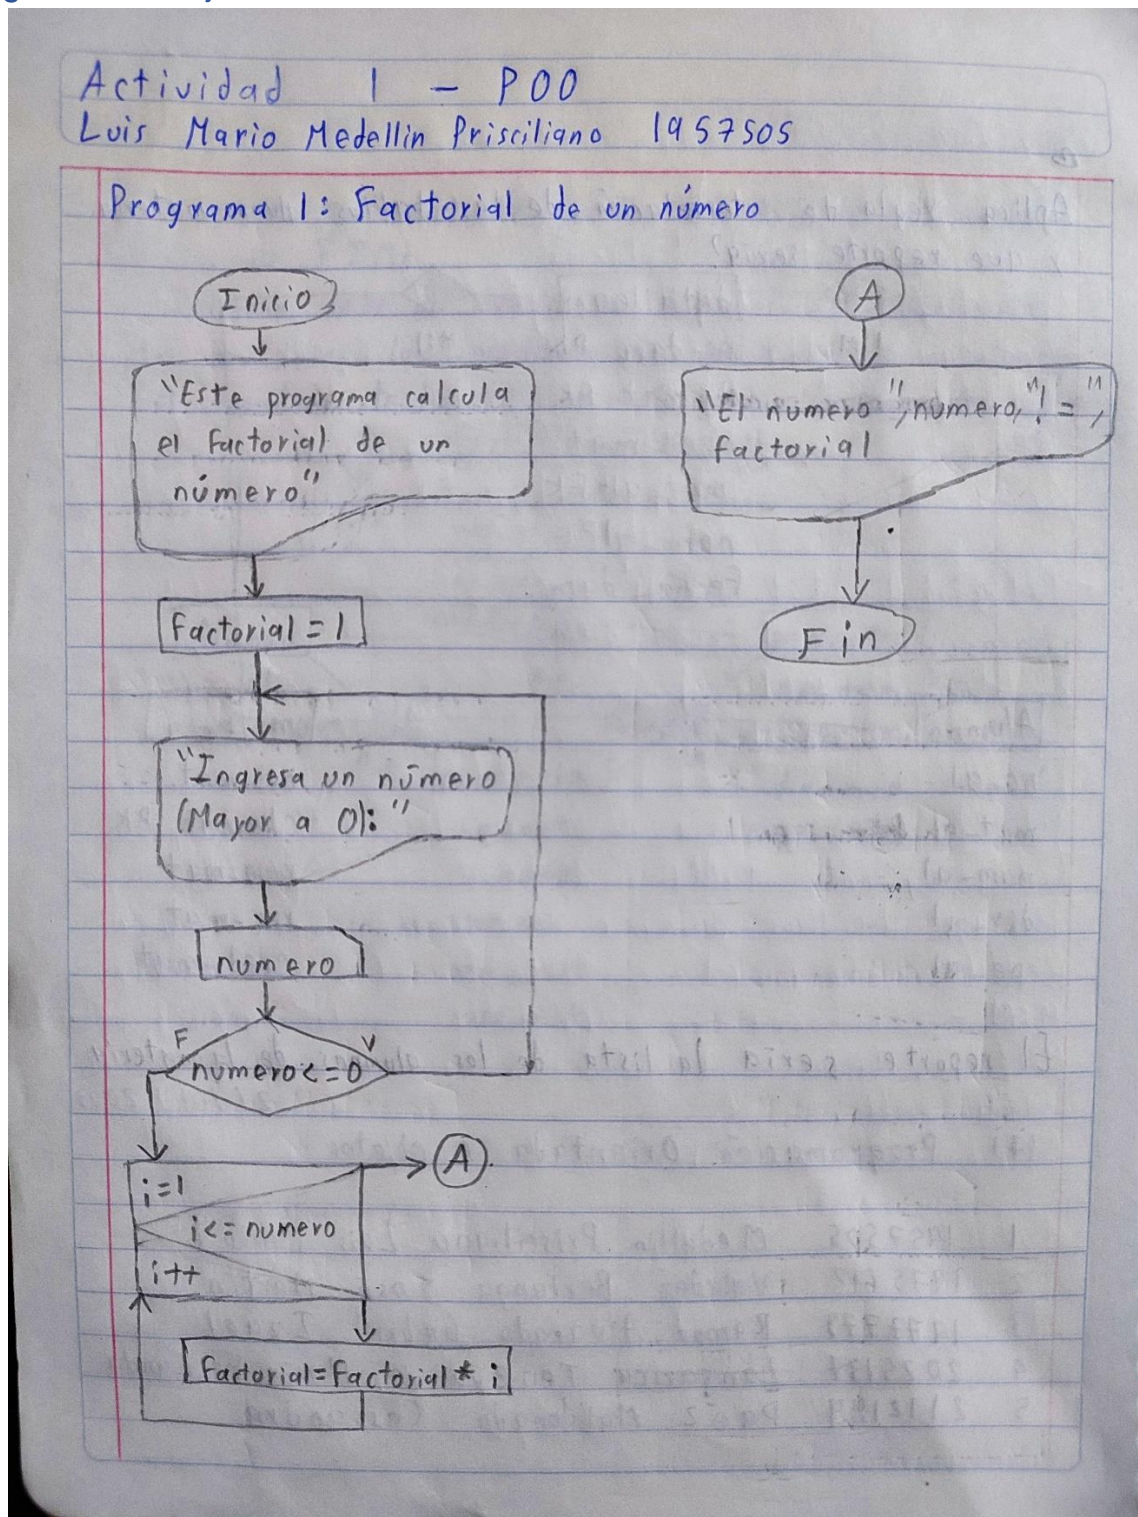 Actividad 1 - POO
Luis Mario Medellin Prisciliano 1957505
Programa 1: Factorial de un número
Inicio
"Este programa calcula
el factorial de un
número"
factorial = 1
"Ingresa un número
(Mayor a 0): "
numero
F
V
numero <= 0
A
i=1
i <= numero
i++
factorial = factorial * i
A
"El numero ", numero, "! = ",
factorial
Fin
El reporte seria la lista de los